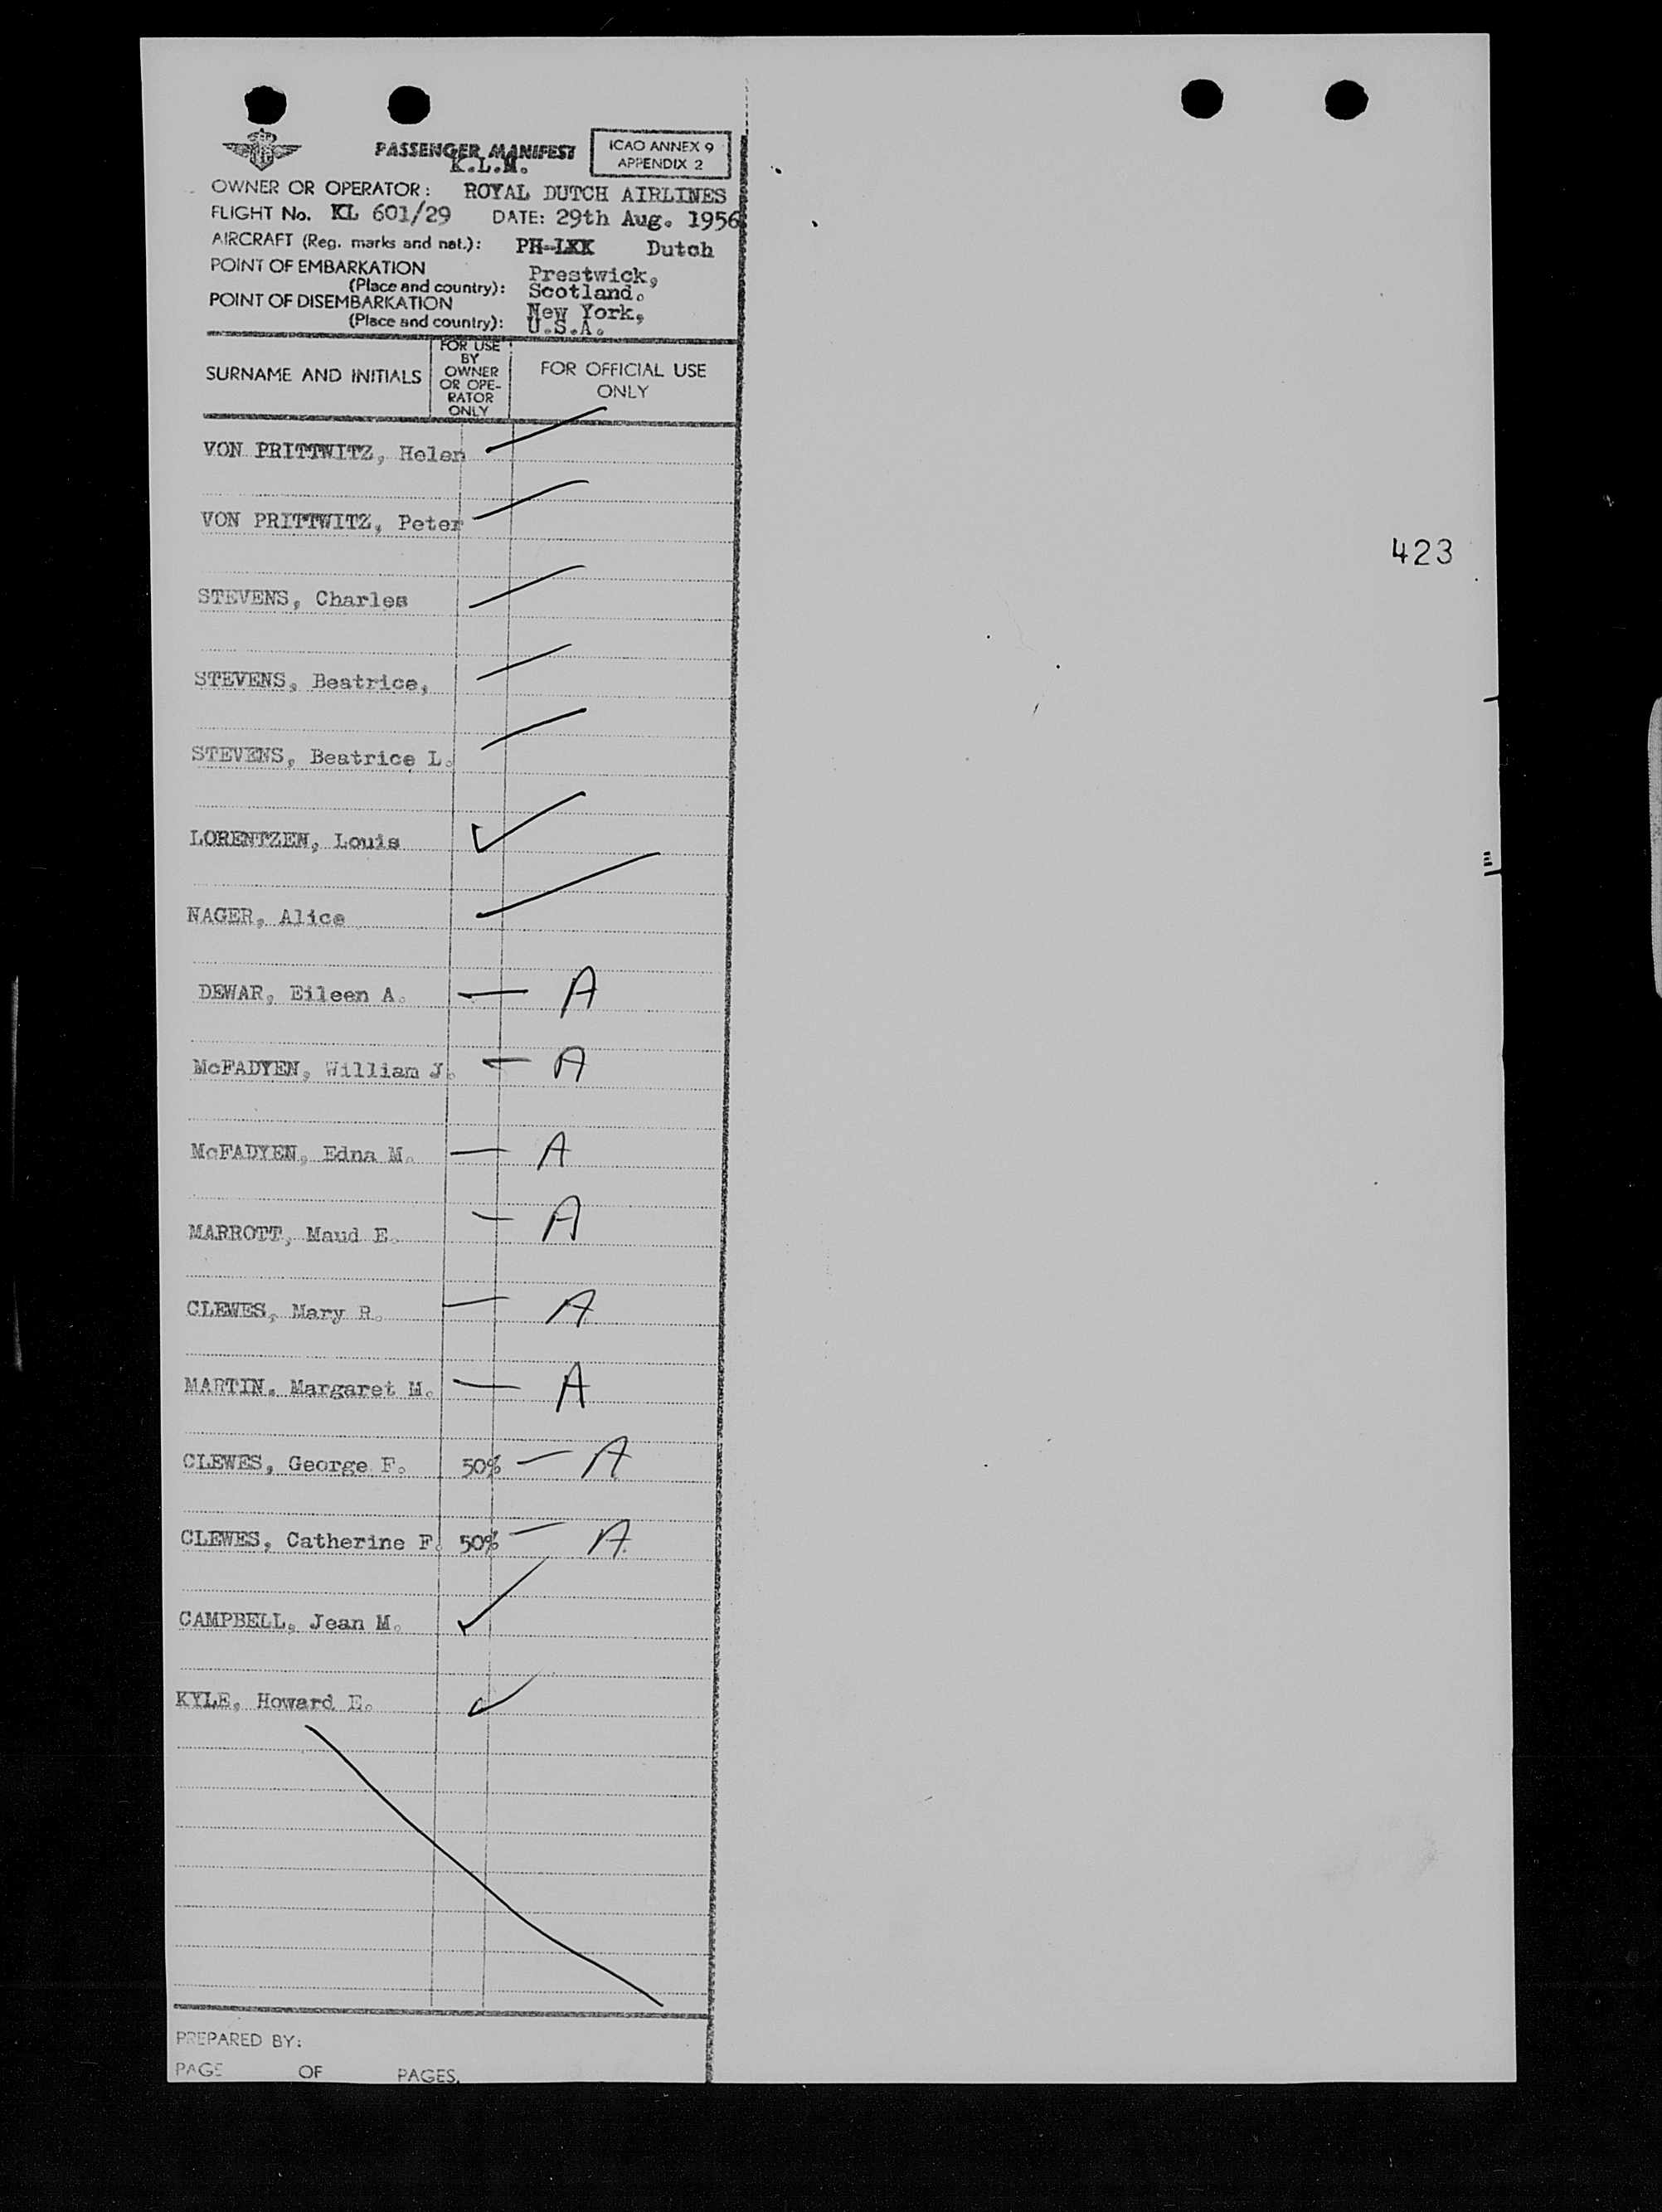 PASSENGER MANIFEST
ICAO ANNEX 9
APPENDIX 2
K.L.M.
OWNER OR OPERATOR: ROYAL DUTCH AIRLINES
FLIGHT No. KL 601/29 DATE: 29th Aug. 1956
AIRCRAFT (Reg. marks and nat.): PH-LKK Dutch
POINT OF EMBARKATION
(Place and country): Prestwick, Scotland.
POINT OF DISEMBARKATION
(Place and country): New York, U.S.A.
SURNAME AND INITIALS
FOR USE BY OWNER OR OPE-RATOR ONLY
FOR OFFICIAL USE ONLY
VON PRITTWITZ, Helen
VON PRITTWITZ, Peter
423
STEVENS, Charles
STEVENS, Beatrice,
STEVENS, Beatrice L.
LORENTZEN, Louis
NAGER, Alice
DEWAR, Eileen A. — A
McFADYEN, William J. — A
McFADYEN, Edna M. — A
MARROTT, Maud E. — A
CLEWES, Mary R. — A
MARTIN. Margaret M. — A
CLEWES, George F. 50% — A
CLEWES, Catherine F. 50% — A
CAMPBELL, Jean M.
KYLE, Howard E.
PREPARED BY:
PAGE OF PAGES.